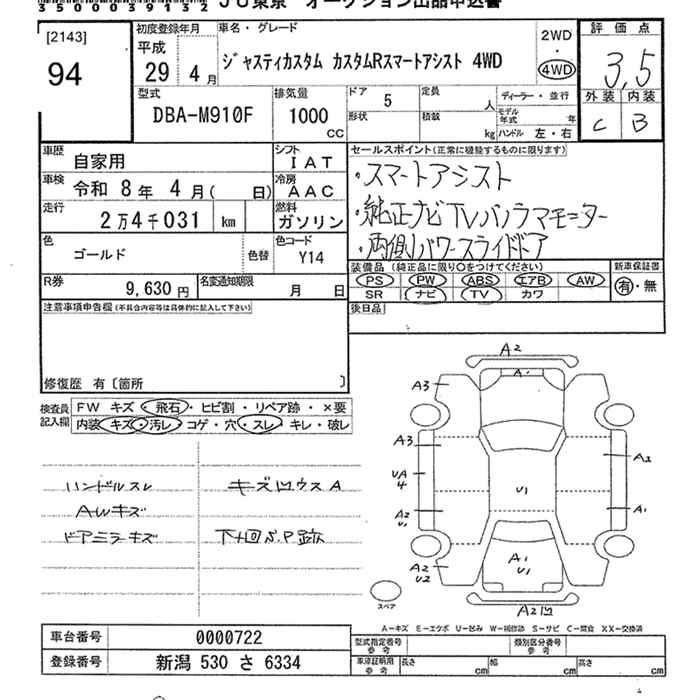 35000391132 JU東京 オークション出品申込書
[2143]
94
初度登録年月
平成
29年 4月
車名・グレード
ジャスティカスタム カスタムRスマートアシスト 4WD
2WD
・
4WD
評価点
3,5
外装 内装
C B
型式
DBA-M910F
排気量
1000
CC
ドア 5
形状
定員 人
積載 kg
ディーラー・並行
モデル年式 年
ハンドル 左・右
車歴 自家用
シフト IAT
車検 令和 8年 4月( 日)
冷房 AAC
走行 2万4千031 km
燃料 ガソリン
色 ゴールド 色替
色コード Y14
R券 9,630円
名変通知期限 月 日
セールスポイント(正常に機能するものに限ります)
・スマートアシスト
・純正ナビTVパノラマモニター
・両側パワースライドドア
装備品(純正品に限り○をつけてください)
PS PW ABS エアB AW
SR ナビ TV カワ
新車保証書
有・無
後日品
注意事項申告欄(不具合内容等は具体的に記入して下さい)
修復歴 有〔箇所 〕
検査員記入欄
FW キズ・飛石・ヒビ割・リペア跡・×要
内装 キズ・汚レ・コゲ・穴・スレ・キレ・破レ
ハンドルスレ キズ凹ウスA
AWキズ
ドアミラーキズ 下廻S.P跡
A2
A1
A3
A3
UA
4
A2
U1
A2
U2
U1
A2
A1
A1
U1
A2凹
スペア
A−キズ E−エクボ U−凹み W−補修跡 S−サビ C−腐食 XX−交換済
車台番号 0000722
登録番号 新潟 530 さ 6334
型式指定番号 参考
類別区分番号 参考
車庫証明用 参考
長さ cm 幅 cm 高さ cm